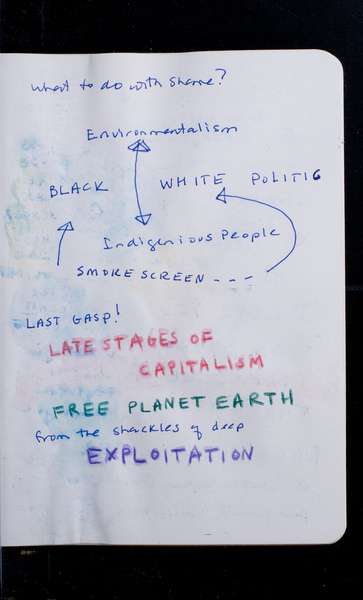 What to do with Shame?
Environmentalism
BLACK WHITE POLITIC
Indigenious People
SMOKE SCREEN - - -
LAST GASP!
LATE STAGES OF
CAPITALISM
FREE PLANET EARTH
from the shackles of deep
EXPLOITATION